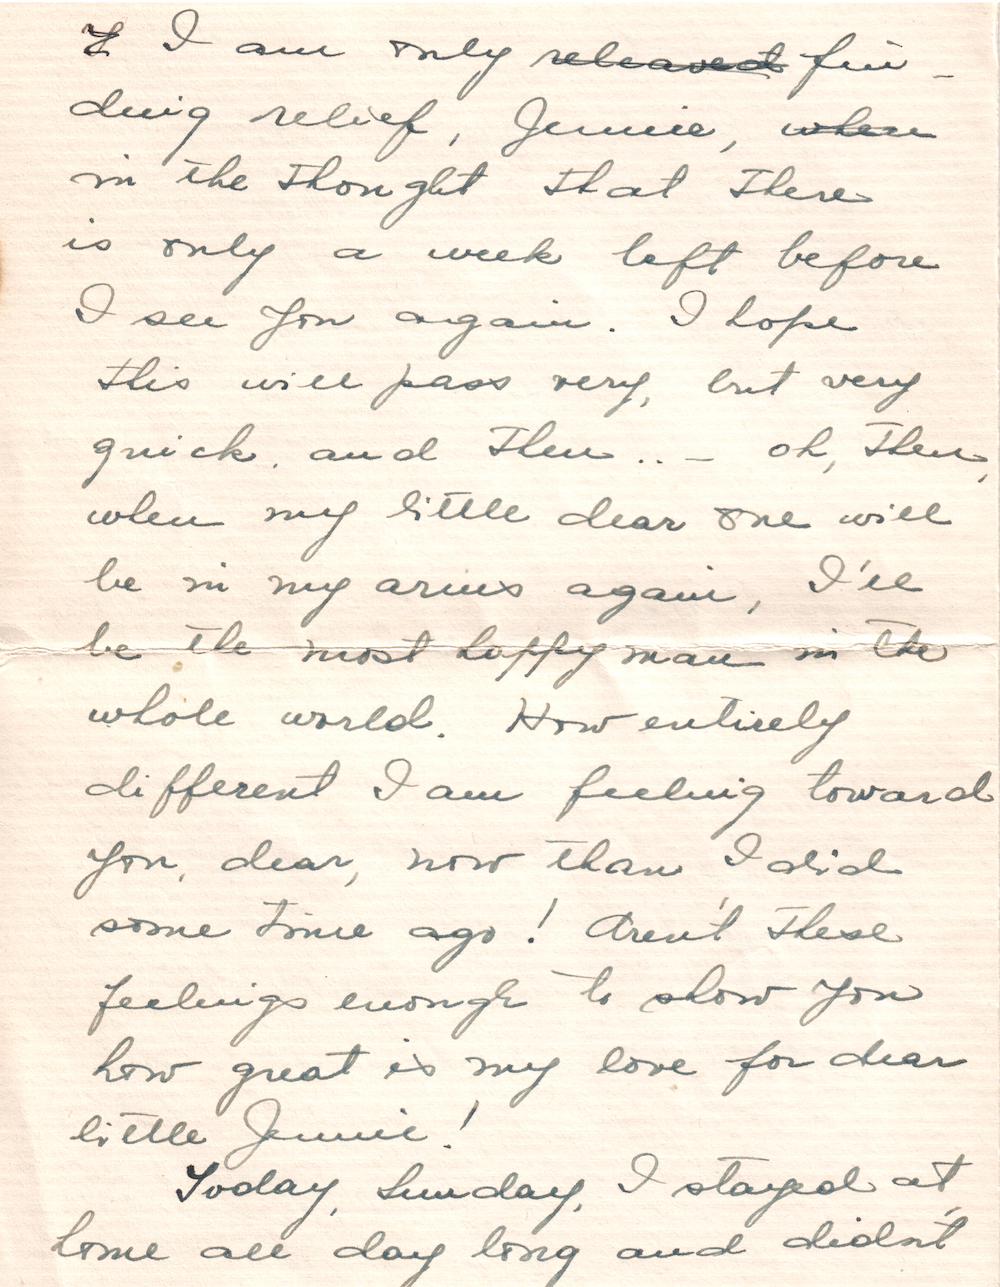 I am only released fin-
ding relief, Jennie, when
in the thought that there
is only a week left before
I see you again. I hope
this will pass very, but very
quick. and then ..– oh, then,
when my little dear one will
be in my arms again, I'll
be the most happy man in the
whole world. How entirely
different I am feeling toward
you, dear, now than I did
some time ago! Aren't these
feelings enough to show you
how great is my love for dear
little Jennie!
Today, Sunday, I stayed at
home all day long and didn't